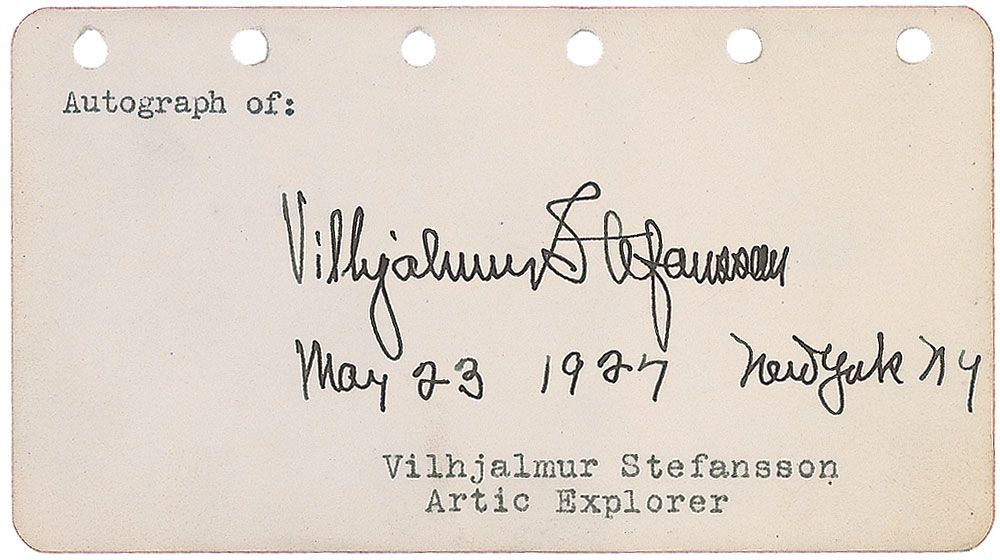 Autograph of:
Vilhjalmur Stefansson
May 23 1927 New York NY
Vilhjalmur Stefansson
Artic Explorer